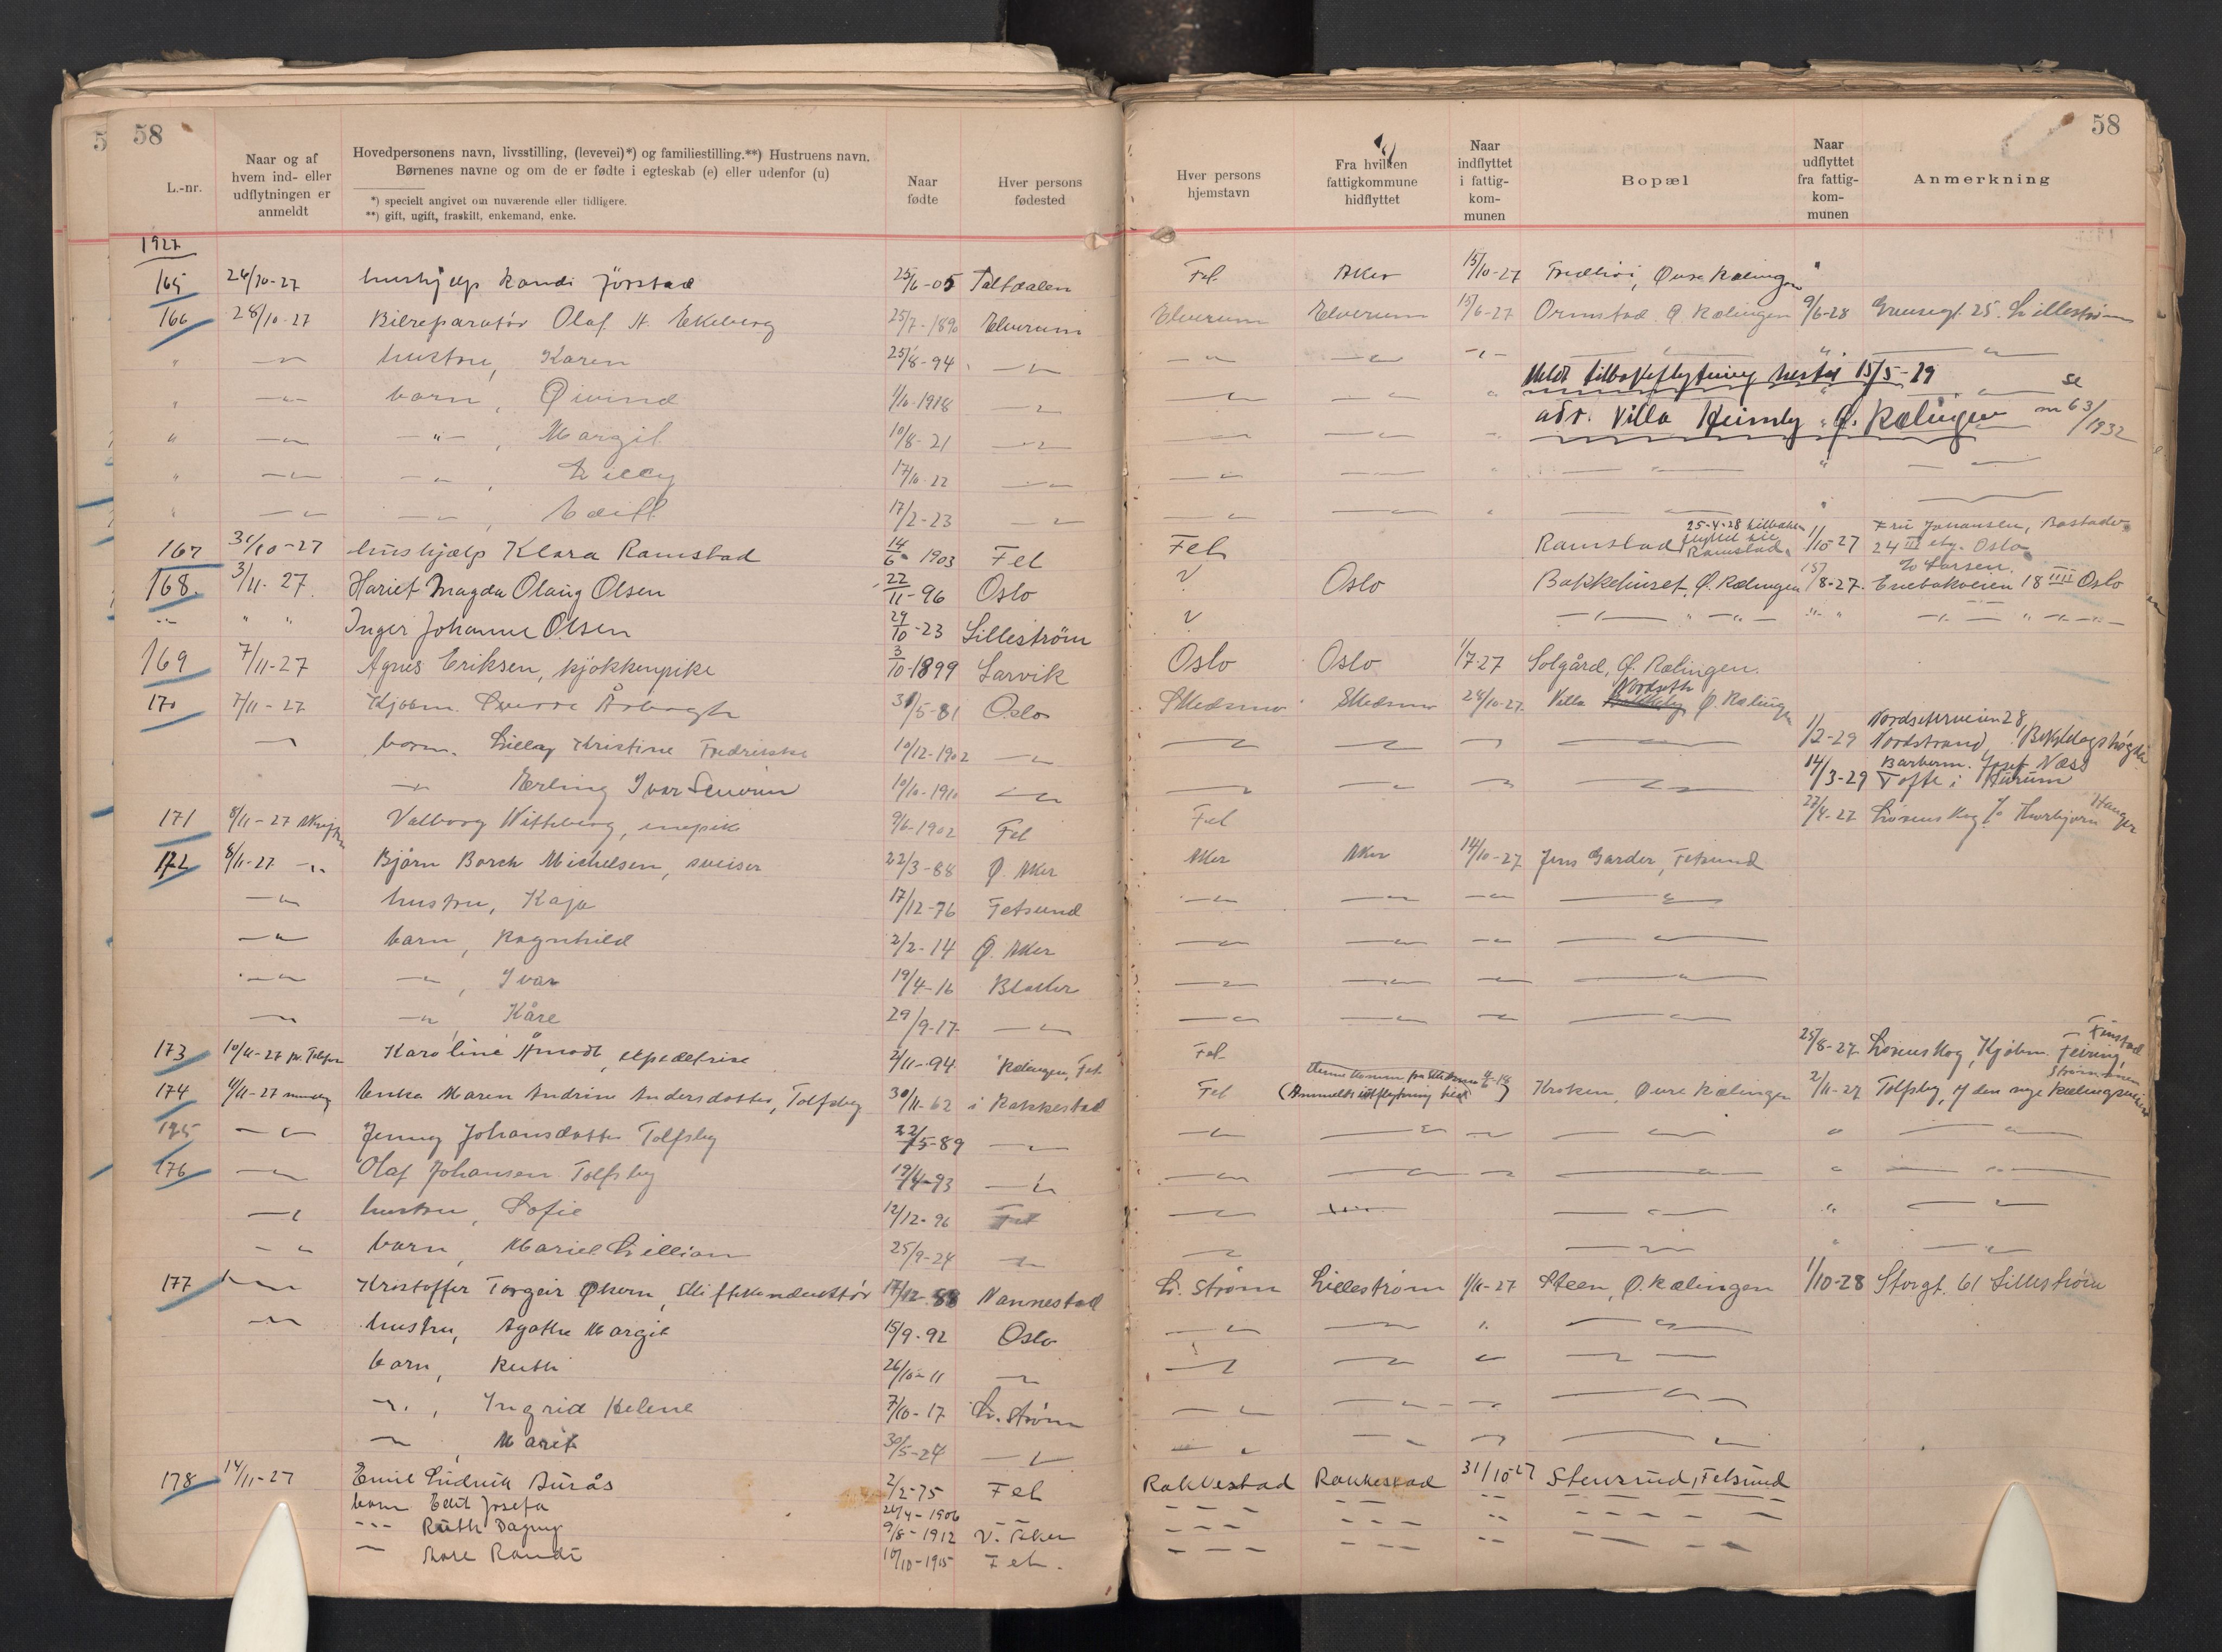 58
58
L.-nr. | Naar og af hvem ind- eller udflytningen er anmeldt | Hovedpersonens navn, livsstilling, (levevei)*) og familiestilling.**) Hustruens navn. Børnenes navne og om de er fødte i egteskab (e) eller udenfor (u) | Naar fødte | Hver persons fødested | Hver persons hjemstavn | Fra hvilken fattigkommune hidflyttet | Naar indflyttet i fattigkommunen | Bopæl | Naar udflyttet fra fattigkommunen | Anmerkning
*) specielt angivet om nuværende eller tidligere.
**) gift, ugift, fraskilt, enkemand, enke.
1927
165 | 26/10-27 | hushjelp Randi Jørstad | 25/6-05 | Tattdalen | Fet | Aker | 15/10-27 | Øvre Rælingen
166 | 28/10-27 | Bilreparatør Olaf A. Ekeberg | 25/7-1890 | Elverum | Elverum | Elverum | 15/6-27 | Ormstad Ø Rælingen | 9/6-28 | Grensegt. 25. Lillestrøm
" | —"— | hustru, Karen | 25/8-94 | —"— | —"— | —"— | —"—
Meldt tilbakeflytning hertil 15/5-29
" | —"— | barn, Øivind | 1/10-1918 | —"— | —"— | —"— | se
adr. Villa Heimly Ø. Rælingen nr 63/1932
" | —"— | —"—, Margit | 10/8-21 | —"— | —"— | —"—
" | —"— | —"—, Lilly | 17/10-22 | —"— | —"— | —"—
" | —"— | —"—, Edith | 17/2-23 | —"— | —"— | —"—
167 | 31/10-27 | hushjælp Klara Ramstad | 14/6-1903 | Fet | Fet | Ramstad 25-4-28 tilbake flyttet til Ramstad | 1/10-27 | Fru Johansen, 24 III etg. Oslo
168 | 3/11-27 | Hariet Magda Olaug Olsen | 22/11-96 | Oslo | ? | Oslo | Bakkehuset, Ø. Rælingen | 15/8-27. | Larsen. Enebakveien 18 IIII Oslo
—"— | " " | Inger Johanne Olsen | 29/10-23 | Lillestrøm | ? | —"—
169 | 7/11-27 | Agnes Eriksen, kjøkkenpike | 3/10-1899 | Larvik | Oslo | Oslo | 1/7-27 | Solgård, Ø. Rælingen.
170 | 7/11-27 | Kjøbm. Sverre | 31/5-81 | Oslo | Skedsmo | Skedsmo | 28/10-27 | Villa Nordseth Ø. Rælingen
—"— | barn. Lilly Kristine Fredrikke | 10/12-1902 | —"— | —"— | —"— | —"— | —"— | 1/2-29 | Nordseterveien 28, Nordstrand, Bekkelagshøgda
—"— Erling Ivar Severin | 10/10-1910 | —"— | —"— | —"— | —"— | —"— | 14/3-29 | Barberm. Josef Næss Tofte i Hurum
171 | 8/11-27 | Valborg Witteberg | 9/6-1902 | Fet | Fet | 27/4-27 | Lørenskog
172 | 8/11-27 —"— | Bjørn Borch Michelsen, sveiser | 22/3-88 | Ø. Aker | Aker | Aker | 14/10-27 | Jens Garder, Fetsund
—"— | hustru, Kaja | 17/12-76 | Fetsund | —"— | —"— | —"— | —"—
—"— | barn, Ragnhild | 2/2-14 | Ø. Aker | —"— | —"— | —"— | —"—
—"— | —"—, Ivar | 19/4-16 | Blaker | —"— | —"— | —"— | —"—
—"— | —"— Kåre | 29/9-17 | —"— | —"— | —"— | —"— | —"—
173 | 10/11-27 pr. Telefon | Karoline Åmodt, | 2/11-94 | Rælingen, Fet | Fet | 25/8-27 | Lørenskog, Kjøbm. Feiring, Strømmen
174 | 11/11-27 | Enke Maren Andrine Andersdatter, Tolfsby | 30/11-62 | i Rakkestad | Fet | Kroken, Øvre Rælingen | 2/11-27 | Tolfsby, den nye Rælingsveien
175 | —"— | Jenny Johansdatter Tolfsby | 22/5-89 | —"— | —"— | —"— | —"— | —"— | " | —"—
176 | —"— | Olaf Johansen Tolfsby | 19/4-93 | —"— | —"— | —"— | —"— | —"— | " | —"—
—"— | hustru, Sofie | 12/12-96 | Fet | —"— | —"— | " | —"—
—"— | barn, Marie Lillian | 25/9-24 | —"— | —"— | —"— | " | —"—
177 | —"— | Kristoffer Torgeir Økern, | 17/12-88 | Nannestad | L. Strøm | Lillestrøm | 1/11-27 | Steen, Ø. Rælingen | 1/10-28 | Storgt. 61 Lillestrøm
—"— | hustru, Agathe Margit | 15/9-92 | Oslo | —"— | —"— | " | —"—
barn, Ruth | 26/10-11 | —"— | —"— | —"— | " | —"—
—"—, Ingrid Helene | 7/10-17 | L. Strøm | —"— | —"— | —"— | —"—
—"—, Marit | 30/5-24 | —"— | —"— | —"— | —"— | —"—
178 | 14/11-27 | Emil Ludvik Aurås | 2/2-75 | Fet | Rakkestad | Rakkestad | 31/10-27 | Stensrud, Fetsund
barn Edit Josefa | 26/4-1906 | —"— | — — — | — — — | —"— | — — —
—"— Ruth Dagny | 9/8-1912 | V. Aker | — — — | — — — | —"— | — — —
—"— Åse Randi | 10/10-1915 | Fet. | — — — | — — — | —"— | — — —